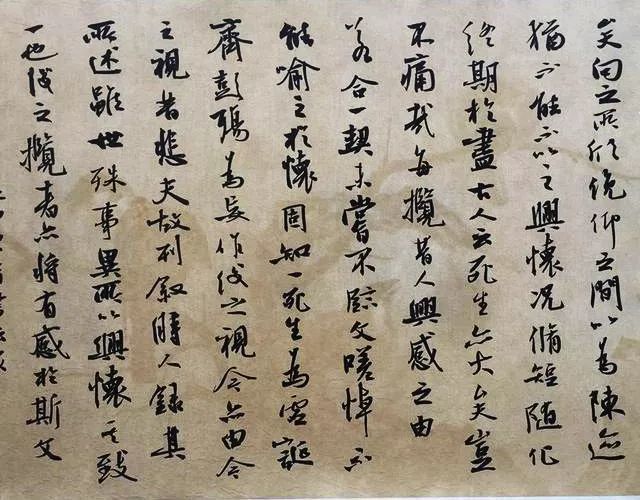 矣向之所欣俛仰之間以為陳迹
猶不能不以之興懷况脩短随化
終期於盡古人云死生亦大矣豈
不痛哉每攬昔人興感之由
若合一契未嘗不臨文嗟悼不
能喻之於懷固知一死生為虛誕
齊彭殤為妄作後之視今亦由今
之視昔悲夫故列叙時人錄其
所述雖世殊事異所以興懷其致
一也後之攬者亦將有感於斯文